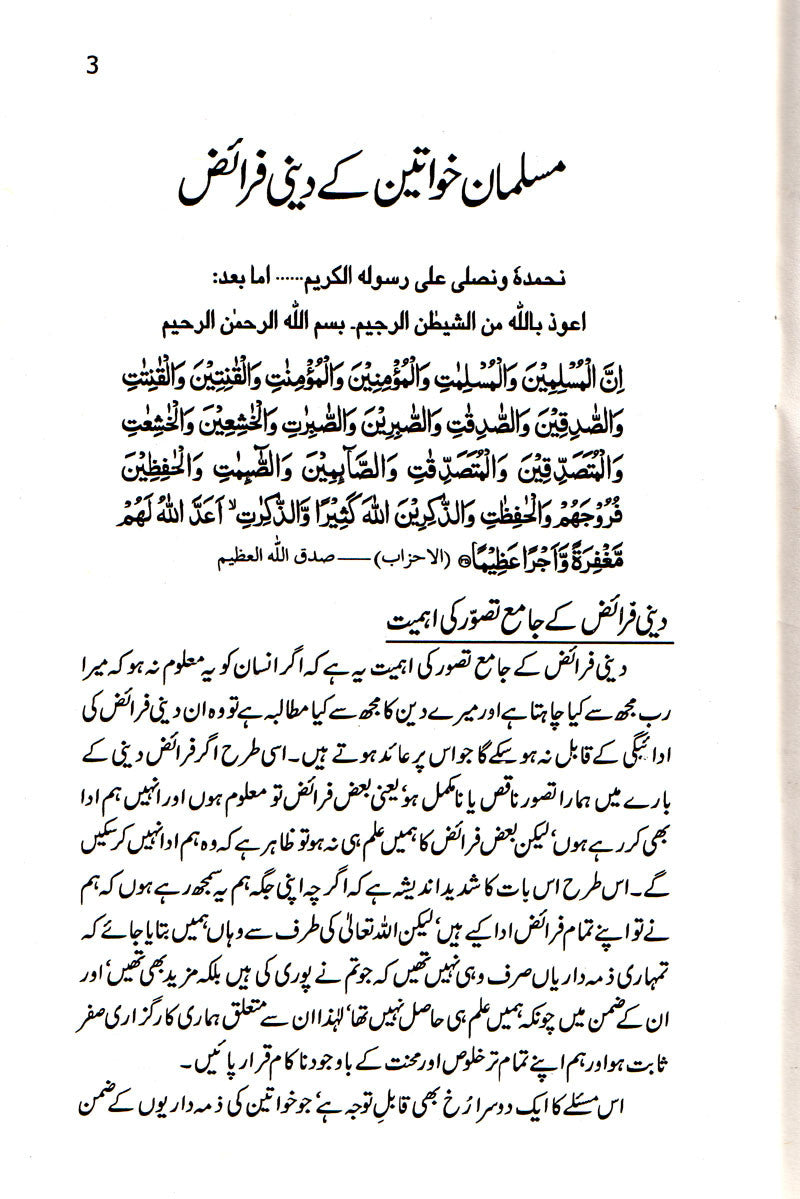 3
مسلمان خواتین کے دینی فرائض
نحمدہٗ ونصلی علی رسولہ الکریم...... اما بعد:
اعوذ باللّٰه من الشیطٰن الرجیم۔ بسم اللّٰه الرحمٰن الرحیم
اِنَّ الْمُسْلِمِیْنَ وَالْمُسْلِمٰتِ وَالْمُؤْمِنِیْنَ وَالْمُؤْمِنٰتِ وَالْقٰنِتِیْنَ وَالْقٰنِتٰتِ
وَالصّٰدِقِیْنَ وَالصّٰدِقٰتِ وَالصّٰبِرِیْنَ وَالصّٰبِرٰتِ وَالْخٰشِعِیْنَ وَالْخٰشِعٰتِ
وَالْمُتَصَدِّقِیْنَ وَالْمُتَصَدِّقٰتِ وَالصَّآىِٕمِیْنَ وَالصّٰٓىِٕمٰتِ وَالْحٰفِظِیْنَ
فُرُوْجَهُمْ وَالْحٰفِظٰتِ وَالذّٰكِرِیْنَ اللّٰهَ كَثِیْرًا وَّالذّٰكِرٰتِ ۙ اَعَدَّ اللّٰهُ لَهُمْ
مَّغْفِرَةً وَّاَجْرًا عَظِیْمًا ﴿۳۵﴾ (الاحزاب) —— صدق اللّٰه العظیم
دینی فرائض کے جامع تصوّر کی اہمیت
دینی فرائض کے جامع تصور کی اہمیت یہ ہے کہ اگر انسان کو یہ معلوم نہ ہو کہ میرا
رب مجھ سے کیا چاہتا ہے اور میرے دین کا مجھ سے کیا مطالبہ ہے تو وہ ان دینی فرائض کی
ادائیگی کے قابل نہ ہو سکے گا جو اس پر عائد ہوتے ہیں۔ اسی طرح اگر فرائض دینی کے
بارے میں ہمارا تصور ناقص یا نامکمل ہو‘ یعنی بعض فرائض تو معلوم ہوں اور انہیں ہم ادا
بھی کر رہے ہوں‘ لیکن بعض فرائض کا ہمیں علم ہی نہ ہو تو ظاہر ہے کہ وہ ہم ادا نہیں کر سکیں
گے۔ اس طرح اس بات کا شدید اندیشہ ہے کہ اگر چہ اپنی جگہ ہم یہ سمجھ رہے ہوں کہ ہم
نے تو اپنے تمام فرائض ادا کیے ہیں‘ لیکن اللہ تعالیٰ کی طرف سے وہاں ہمیں بتایا جائے کہ
تمہاری ذمہ داریاں صرف وہی نہیں تھیں کہ جو تم نے پوری کی ہیں بلکہ مزید بھی تھیں‘ اور
ان کے ضمن میں چونکہ ہمیں علم ہی حاصل نہیں تھا‘ لہٰذا ان سے متعلق ہماری کارگزاری صفر
ثابت ہو اور ہم اپنے تمام تر خلوص اور محنت کے باوجود ناکام قرار پائیں۔
اس مسئلے کا ایک دوسرا رُخ بھی قابلِ توجہ ہے‘ جو خواتین کی ذمہ داریوں کے ضمن